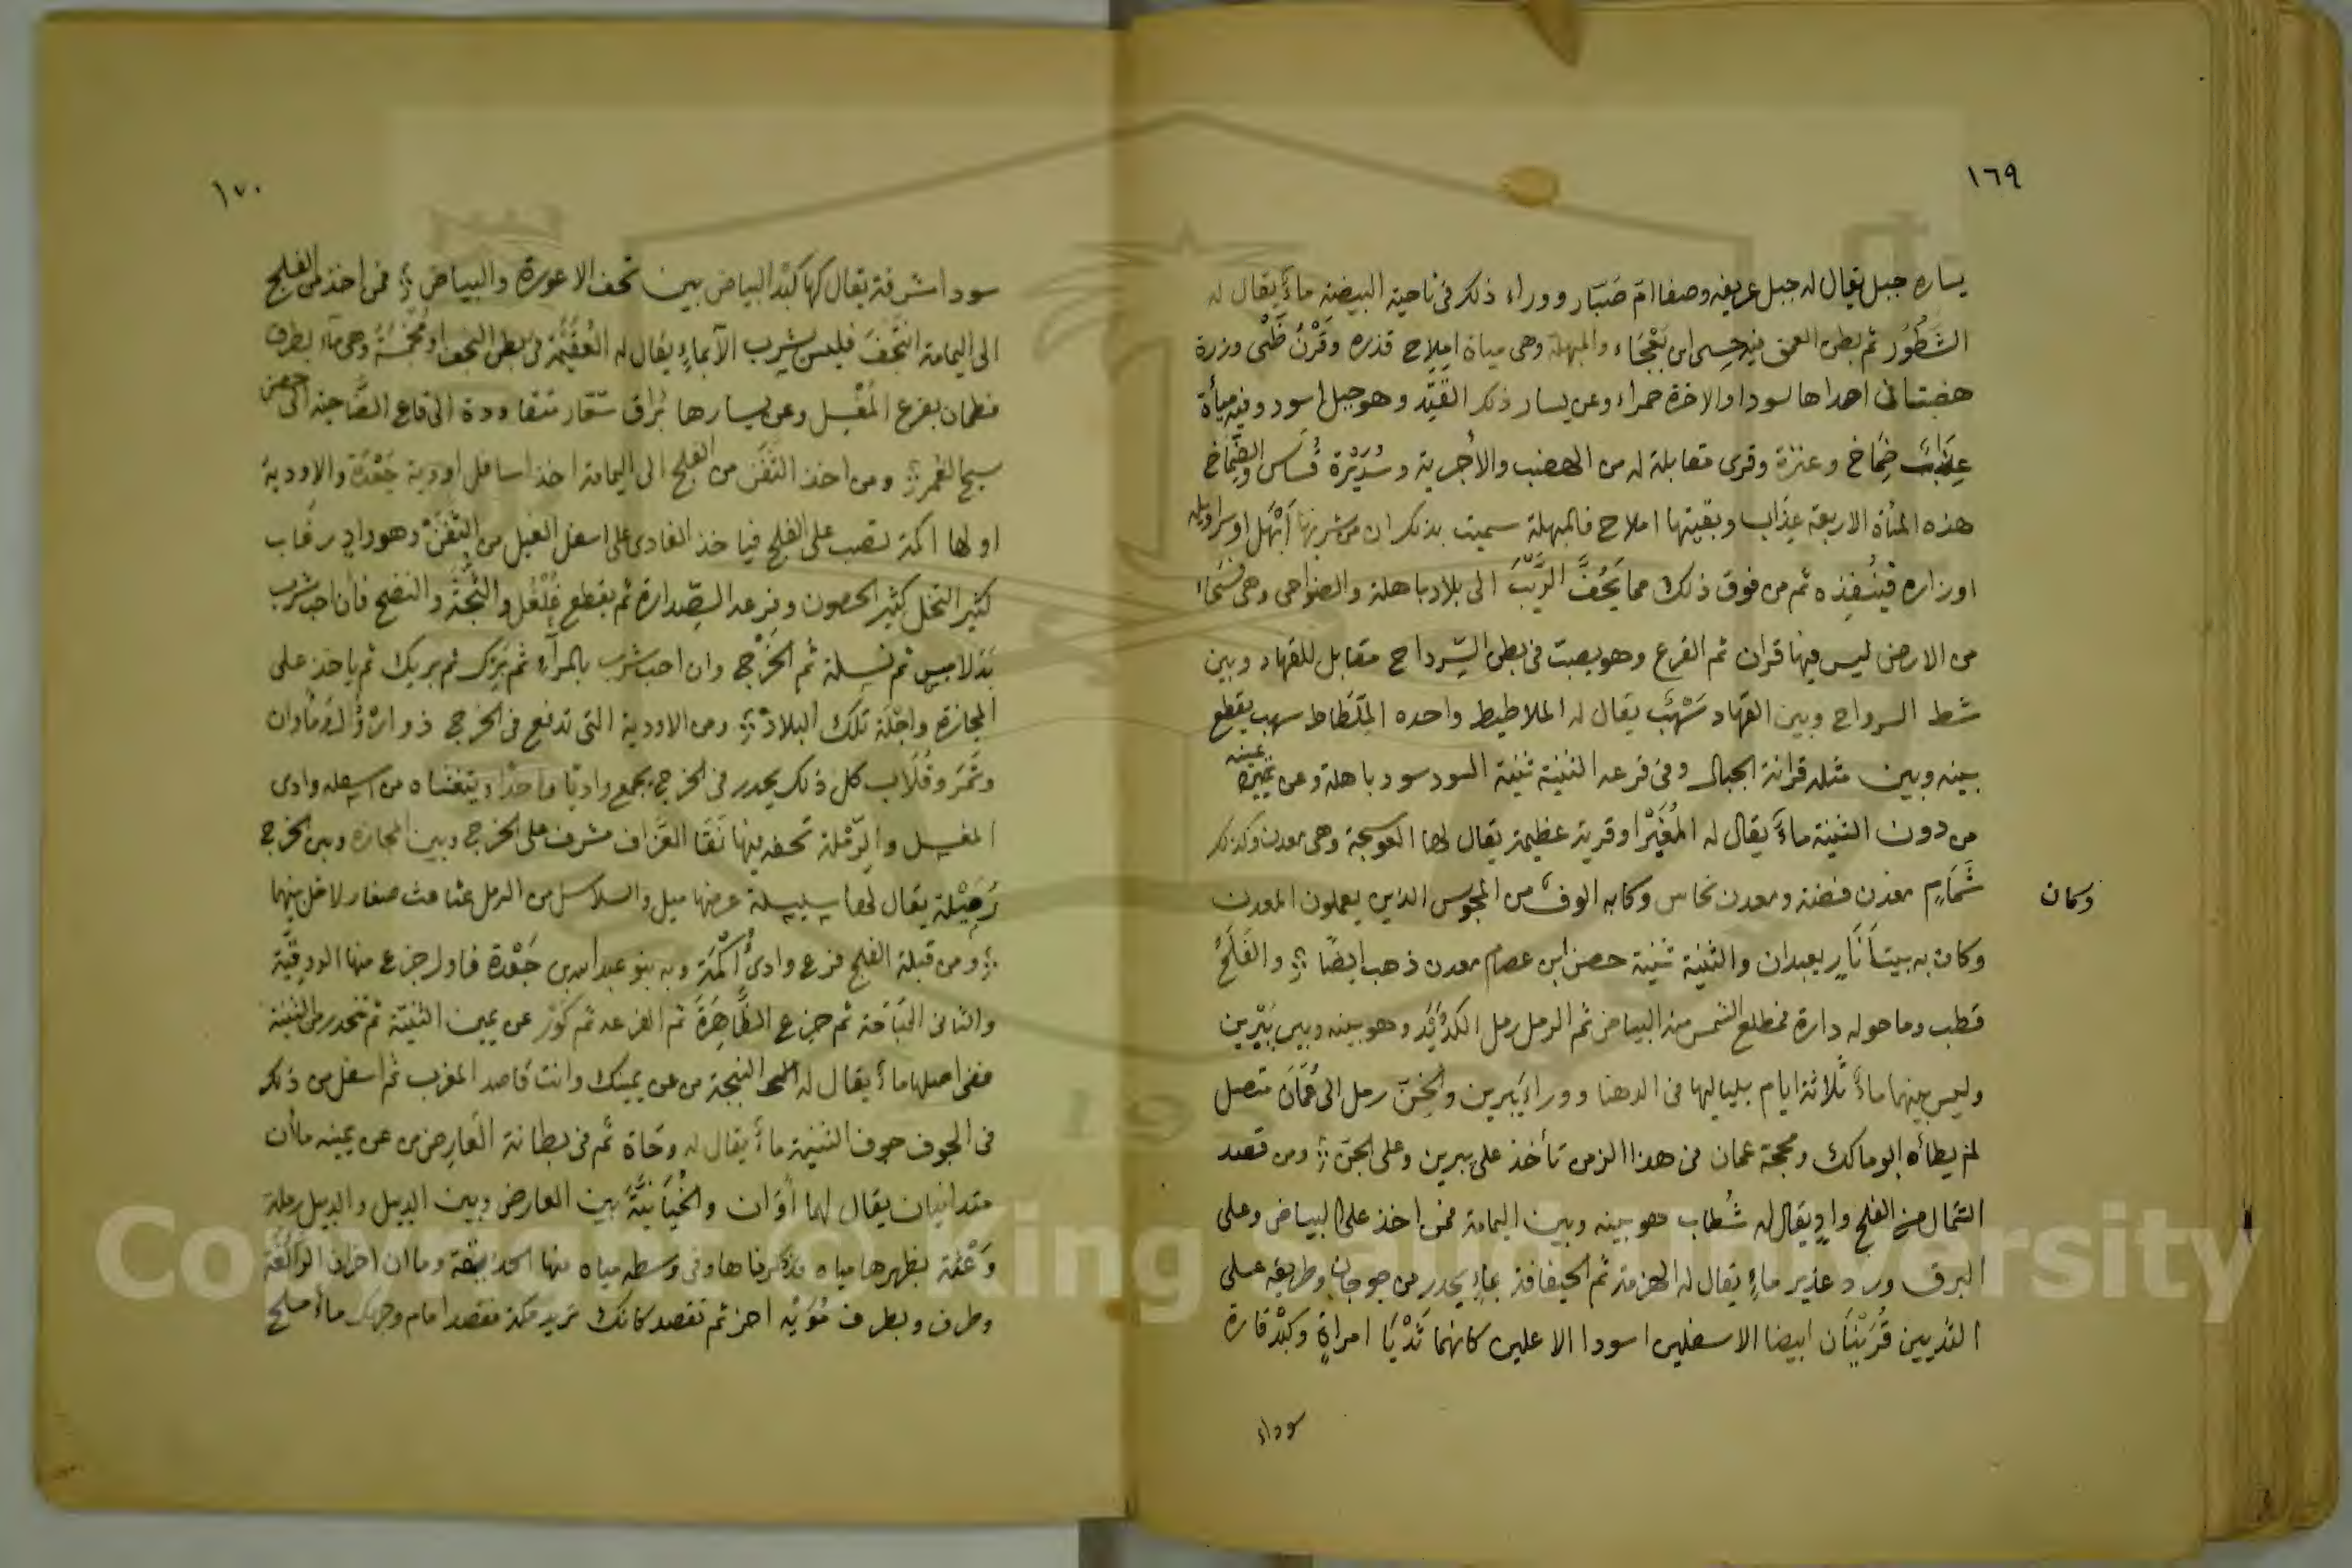 ١٦٩
يساره جبل يقال له جبل عريفه وصفا ام صبّار ووراء ذلك في ناحية البيضة ماء يقال له
الشطور ثم بطن العمق فيه حسى ابن بعجاء والمبهلة وهي مياة املاح قذره وقرن ظبى وزرة
هضبتان احداها سودا والاخرة حمراء وعن يسار ذلك القيد وهو جبل اسود وفيه مياة
عذاب ضماخ وعنزة وقرى مقابلة له من الهضب والاجرية وسديرة قساس والضماخ
هذه المياة الاربعة عذاب وبقيتها املاح فالمبهلة سميت بذلك ان من شربها ابتهل او سراويله
او زاره فينفذه ثم من فوق ذلك مما يحف الريب الى بلاد باهلة والضواحى وهى
من الارض ليس فيها قران ثم الفرع وهو يصب في بطن السرداح مقابل للقهاد وبين
شط السرداح وبين القهاد سهب يقال له الملاطيط واحده الملطاط سهب يقطع
بينه وبين مثله قرانة الجبال وفي فرعه الثنية ثنية السود سود باهلة وعن يمينه
من دون الثنية ماء يقال له المغيرا وقرية عظيمة يقال لها العوسجة وهي معدن وكذلك
شمام معدن فضة ومعدن نحاس وكابه الوف من المجوس الذين يعملون المعدن
وكان
وكان به بيتا نار يعبدان والثنية ثنية حصن ابن عصام معدن ذهب ايضا والفلج
قطب وما حوله دارة فمطلع الشمس منه البياض ثم الرمل رمل الكدير وهو بينه وبين يبرين
وليس بينها ماء ثلاثة ايام بلياليها في الدهنا ووراء يبرين والخن رمل الى عمان متصل
لم يطأه ابو مالك ومحجة عمان في هذا الزمن تأخذ على يبرين وعلى الجن ومن قصد
الشمال من الفلج واد يقال له شطاب وهو بينه وبين اليمامة فمن اخذ على البياض وعلى
البرق ورد غدير ماء يقال له الهزمة ثم الحيفافة ماء يحدر من جو جبان وطريقه على
الثديين قرينان ابيضا الاسفلين اسودا الاعلين كانهما ثديا امراة وكبد قارة
سوداء
١٧٠
سودا مشرفة يقال لها كبد البياض بين نحف الاعورة والبياض فمن اخذ من الفلج
الى اليمامة انتحف فليس يشرب الا بماء يقال له العقيمة في بطن النحف او مخمسة وهي ماء بطرف
فطمان بفرع المغسل وعن يسارها براق شقار متقاودة الى قاع الضاحية الى حصن
سيح الغمر ومن اخذ الثفن من الفلج الى اليمامة اخذ اسافل اودية جعدة والاودية
اولها اكمة تصب على الفلج فياخذ الغادى على اسفل الغيل من الثفن وهو واد رغاب
كثير النخل كثير الحصون وفرعه الصدارة ثم يقطع غلغل والثجة والنضح فان احب شرب
بذلاميس ثم نسلة ثم الخرج وان احب شرب بالمرآء ثم برك ثم بريك ثم ياخذ على
المجازة واجلة تلك البلاد ومن الاودية التى تدفع في الخرج ذو اراول وماوان
وثمر وقلاب كل ذلك يحدر في الخرج يجمع واديا واحدا ويتغشاه من اسفله وادى
المغسل والرملة تحفه فيها نقا العزاف مشرف على الخرج وبين المجازة وبين الخرج
رحيلة يقال لها سبيلة عرضها ميل والسلاسل من الرمل عثاعث صغار لا خل بينهما
ومن قبلة الفلج فرع وادى اكمة وبه بنو عبد الله بن جعدة فاول جزع منها الودقية
والثانى الجباحة ثم جزع الظاهرة ثم الفرعه ثم كور عن يمين الثنية ثم تنحدر من الثنية
ففى اصلها ماء يقال له النجة من عن يمينك وانت قاصد المغرب ثم اسفل من ذلك
في الجوف جوف الثنية ماء يقال له وحاة ثم في بطانة العارض من عن يمينه ماآن
متدانيان يقال لهما اوان والخيانية بين العارض وبين الدبيل والدبيل رملة
وعثة بظهرها مياه قد ذكرناها وفى وسطه مياه منها الحذيقة وماآن اخران الوالغة
وطرف وبطرف مويه اخر ثم تقصد كانك تريد مكة فقصد امام وجهك ماء ملح